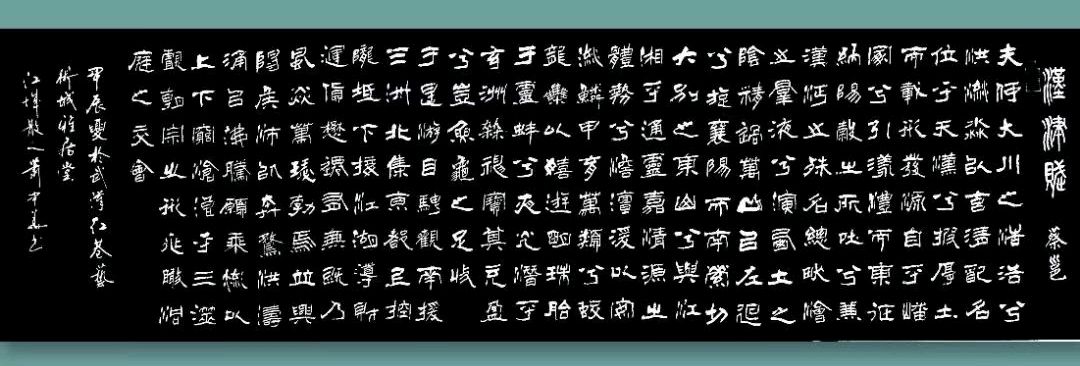 漢津賦
蔡邕
夫何大川之浩浩兮
洪流淼以玄清配名
位乎天漢兮披厚土
而載形發源自乎嶓
冢兮引漾澧而東征
納陽穀之所吐兮兼
漢沔之殊名總畎澮
之羣液兮演西土之
陰精過萬山以左迴
兮旋襄陽而南縈切
大別之東山兮與江
湘乎通靈嘉清源之
體勢兮澹澶湲以安
流鱗甲育萬類兮蛟
龍集以嬉遊明珠胎
于靈蚌兮夜光潛乎
玄洲雜神寶其充盈
兮豈魚龜之足收
于是游目騁觀南援
三洲北集京都上控
隴坻下接江湖導財
運貨懋遷有無既乃
風焱蕭瑟勃焉並興
陽侯沛以奔騖洪濤
涌以沸騰願乘流以
上下窮滄浪乎三澨
觀朝宗之形兆瞰洞
庭之交會
甲辰夏於武漢紅巷藝
術城雅居堂
江城散人